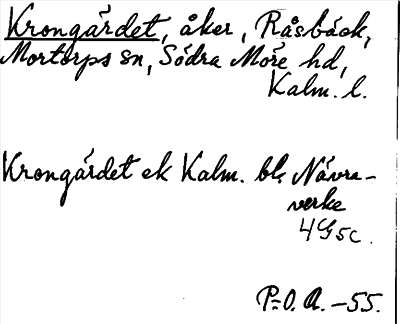 Krongärdet, åker, Råsbäck,
Mortorps sn, Södra Möre hd,
Kalm. l.
Krongärdet ek Kalm. bl. Nävra-
verke
4G5c.
P.O.A. -55.